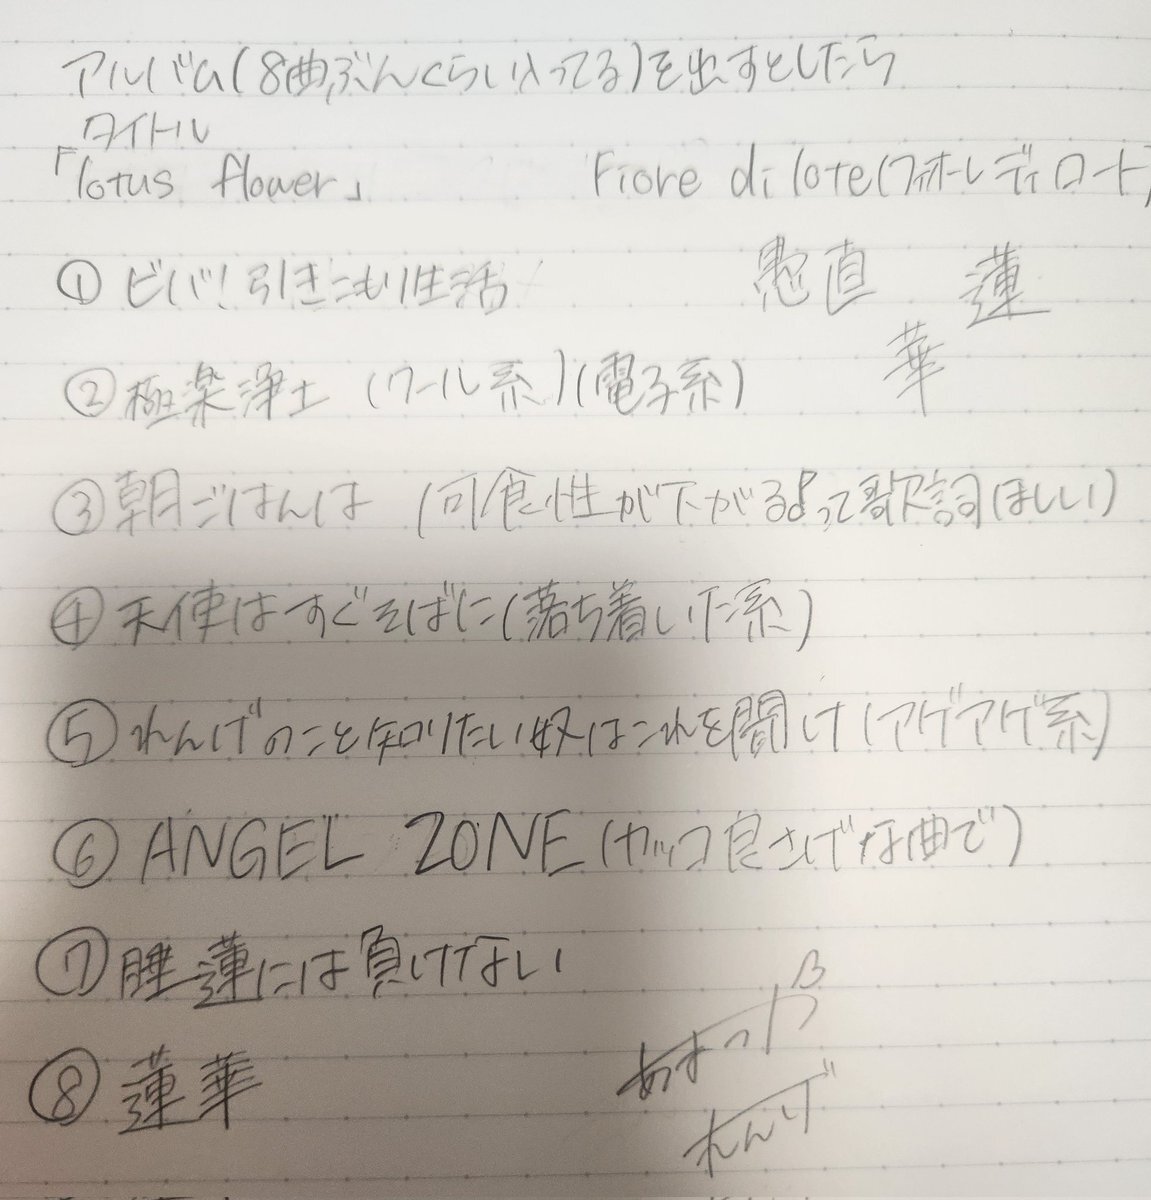 アルバム(8曲ぶんくらい入ってる)を出すとしたら
タイトル
「lotus flower」 Fiore di lote(フィオーレディロート)
①ビバ!引きこもり生活 愚直 蓮
華
②極楽浄土 (クール系)(電子系)
③朝ごはんは (可食性が下がるよって歌詞ほしい)
④天使はすぐそばに(落ち着いた系)
⑤れんげのこと知りたい奴はこれを聞け(アゲアゲ系)
⑥ANGEL ZONE(カッコ良さげな曲で)
⑦睡蓮には負けない
⑧蓮華
れんげ